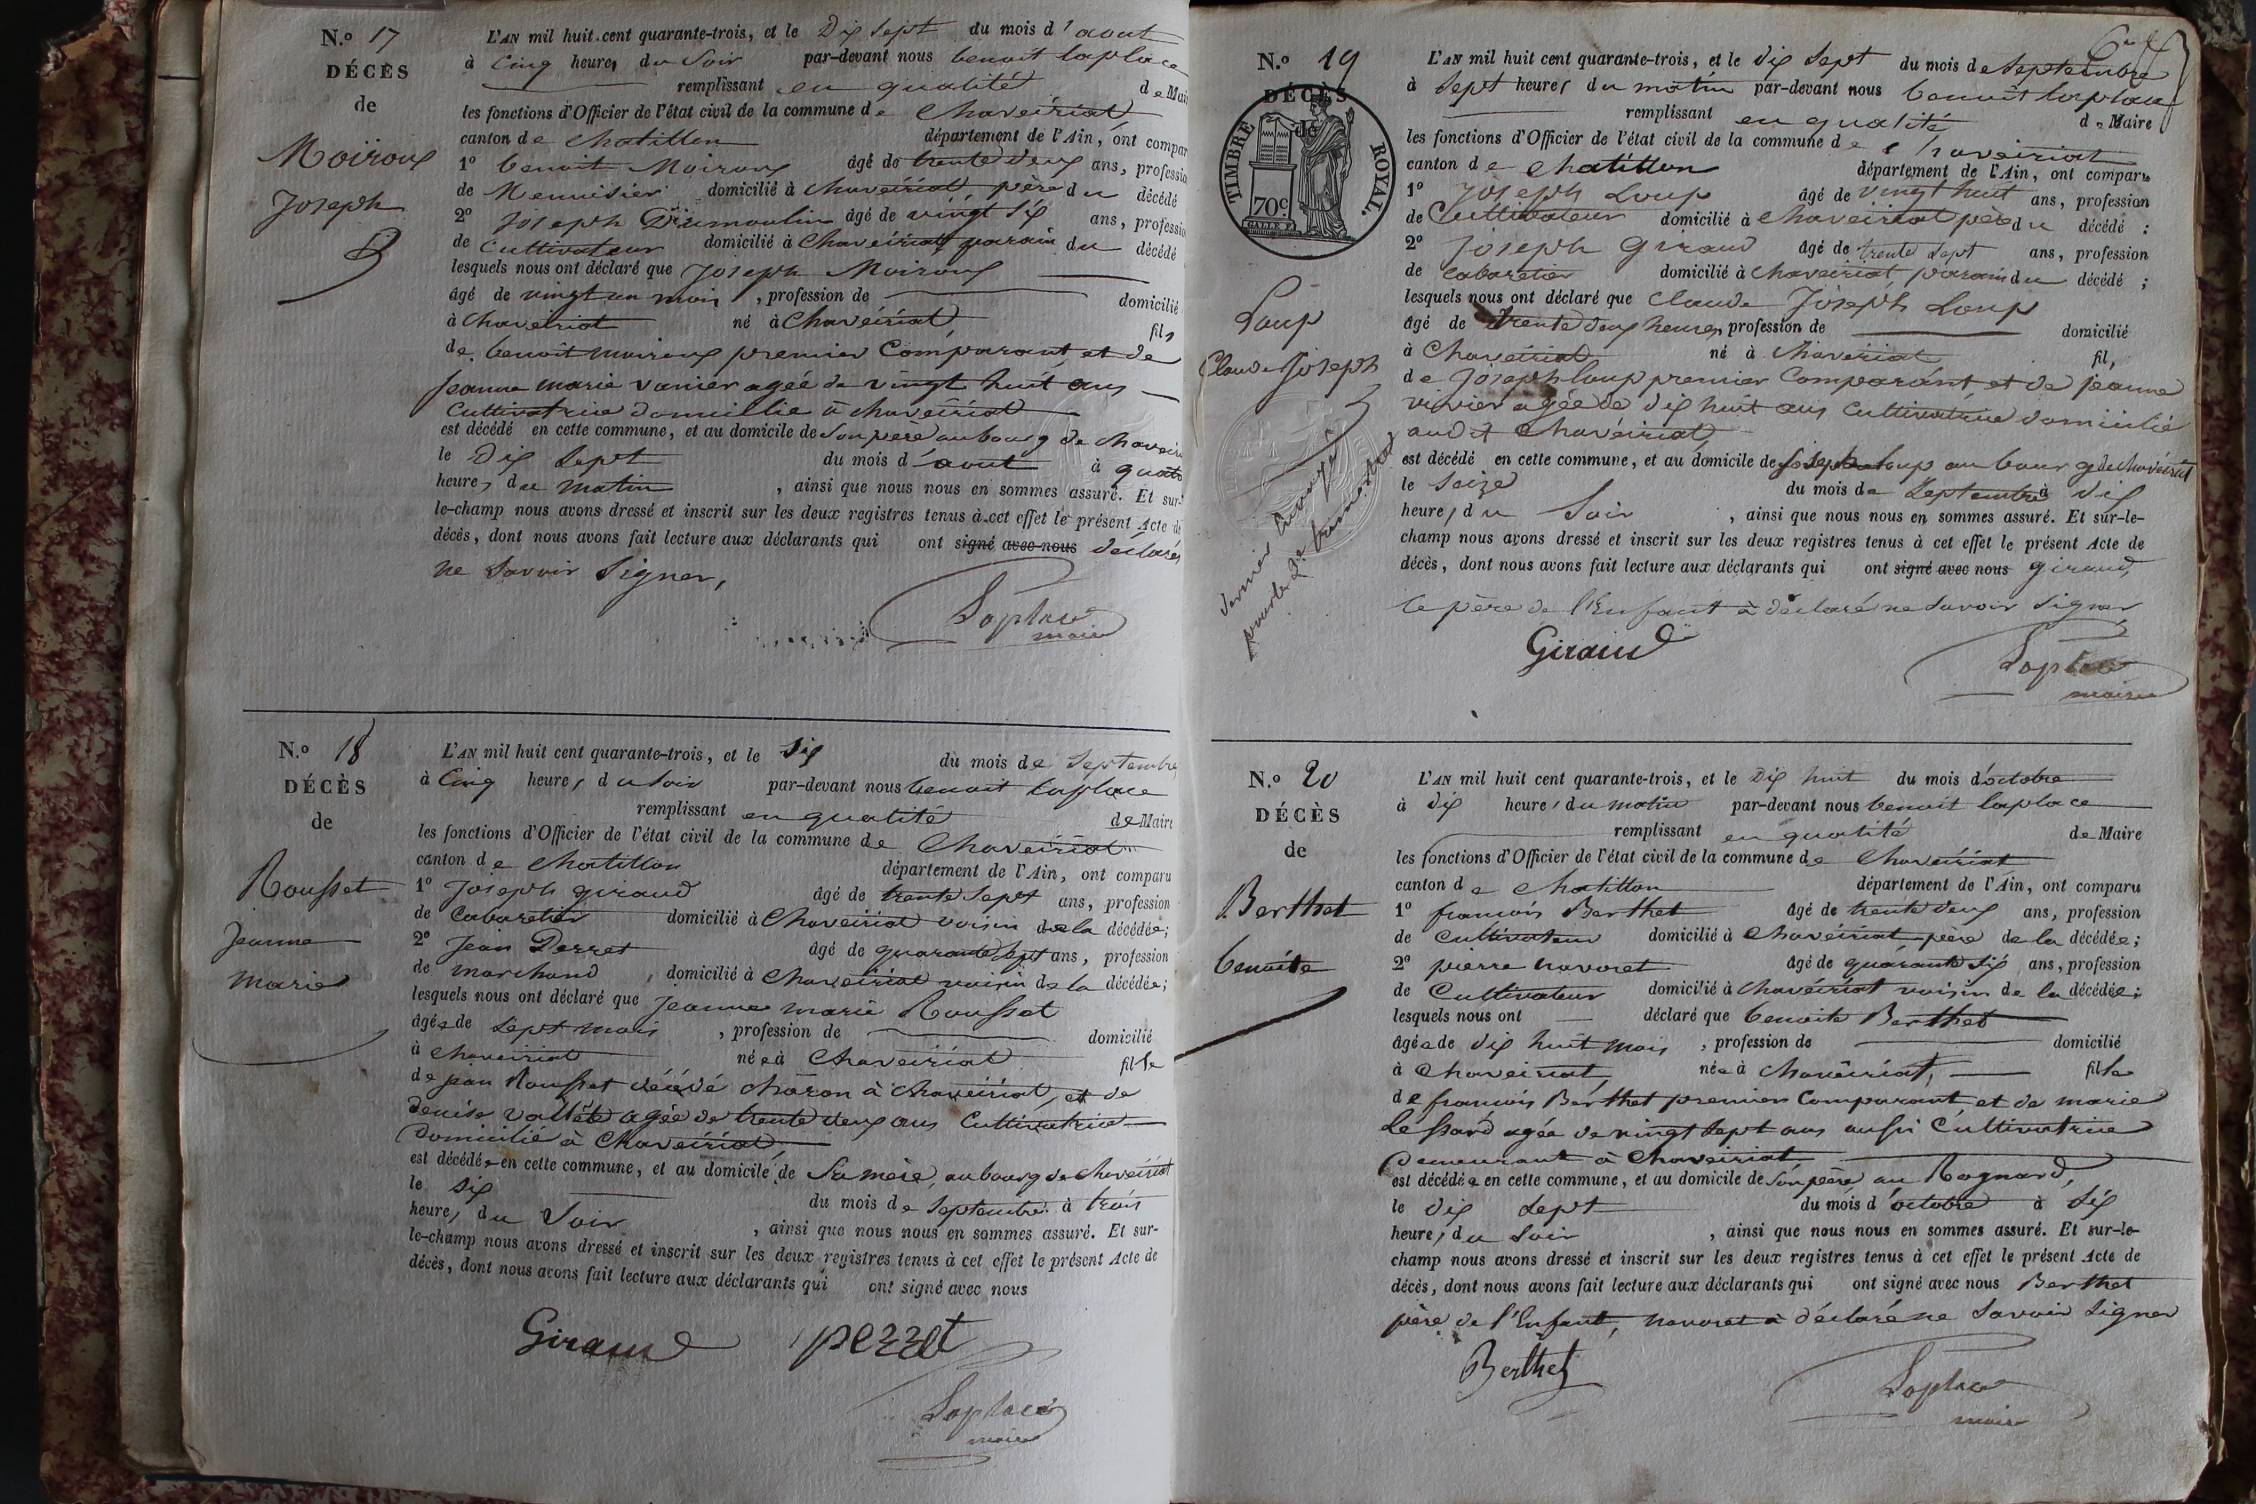 N.o 17
DÉCÈS
de
Moiroux
Joseph
L'AN mil huit cent quarante-trois, et le Dix Sept du mois d'aout
à Cinq heures du Soir par-devant nous benoit laplace
remplissant en qualité de Mai
les fonctions d'Officier de l'état civil de la commune de Chaveiriat
canton de Chatillon département de l'Ain, ont compar
1o benoit Moiroux âgé de trente deux ans, professio
de Menuisier domicilié à Chaveiriat père du décédé
2o Joseph Dumoulin âgé de vingt Six ans, professio
de Cultivateur domicilié à Chaveiriat parain du décédé
lesquels nous ont déclaré que Joseph Moiroux
âgé de vingt un mois, profession de domicilié
à Chaveiriat né à Chaveiriat fils
de benoit moiroux premier Comparant et de
Jeanne marie vanier agée de vingt huit ans
Cultivatrice domicillie à chaveiriat
est décédé en cette commune, et au domicile de Son père au bourg de chavei
le Dix Sept du mois d'aout à quat
heures du matin, ainsi que nous nous en sommes assuré. Et sur-
le-champ nous avons dressé et inscrit sur les deux registres tenus à cet effet le présent Acte de
décès, dont nous avons fait lecture aux déclarants qui ont signé avec nous déclarés
ne Savoir Signer,
Laplace
maire
N.o 18
DÉCÈS
de
Rousset
Jeanne
marie
L'AN mil huit cent quarante-trois, et le Six du mois de Septembre
à Cinq heures du Soir par-devant nous benoit laplace
remplissant en qualité de Maire
les fonctions d'Officier de l'état civil de la commune de Chaveiriat
canton de Chatillon département de l'Ain, ont comparu
1o Joseph giraud âgé de trente Sept ans, profession
de Cabaretier domicilié à Chaveiriat voisin de la décédée;
2o Jean Perret âgé de quarante Sept ans, profession
de marchand, domicilié à Chaveiriat voisin de la décédée;
lesquels nous ont déclaré que Jeanne marie Rousset
âgée de Sept mois, profession de domicilié
à Chaveiriat née à Chaveiriat fille
de jean Rousset décédé charon à Chaveiriat, et de
denise agée de trente deux ans Cultivatrice
Domicilié à Chaveiriat
est décédée en cette commune, et au domicile de Sa mère, au bourg de Chaveiriat
le Six du mois de Septembre à trois
heures du Soir, ainsi que nous nous en sommes assuré. Et sur-
le-champ nous avons dressé et inscrit sur les deux registres tenus à cet effet le présent Acte de
décès, dont nous avons fait lecture aux déclarants qui ont signé avec nous
Giraud pezzet
Laplace
maire
N.o 19
DÉCÈS
de
TIMBRE ROYAL.
70c
Loup
Claude Joseph
dernier Envoyé
pour le 2e trimestre
L'AN mil huit cent quarante-trois, et le Dix Sept du mois de Septembre
à Sept heures du matin par-devant nous benoit laplace
remplissant en qualité de Maire
les fonctions d'Officier de l'état civil de la commune de Chaveiriat
canton de Chatillon département de l'Ain, ont comparu
1o Joseph Loup âgé de vingt huit ans, profession
de Cultivateur domicilié à Chaveiriat père du décédé :
2o Joseph Giraud âgé de trente Sept ans, profession
de Cabaretier domicilié à Chaveiriat, parain du décédé ;
lesquels nous ont déclaré que Claude Joseph Loup
âgé de trente deux heures, profession de domicilié
à Chaveiriat né à Chaveriat fils
de Joseph loup premier Comparant et de jeanne
vivier agée de dix huit ans Cultivatrice domicilié
audit Chaveiriat
est décédé en cette commune, et au domicile de joseph loup au bourg de chaveiriat
le Seize du mois de Septembre à dix
heures du Soir, ainsi que nous nous en sommes assuré. Et sur-le-
champ nous avons dressé et inscrit sur les deux registres tenus à cet effet le présent Acte de
décès, dont nous avons fait lecture aux déclarants qui ont signé avec nous giraud,
le père de l'Enfant à déclaré ne Savoir Signer
Giraud
Laplace
maire
N.o 20
DÉCÈS
de
Berthet
benoite
L'AN mil huit cent quarante-trois, et le Dix huit du mois d'octobre
à dix heures du matin par-devant nous benoit laplace
remplissant en qualité de Maire
les fonctions d'Officier de l'état civil de la commune de Chaveiriat
canton de Chatillon département de l'Ain, ont comparu
1o francois Berthet âgé de trente deux ans, profession
de Cultivateur domicilié à Chaveiriat père de la décédée;
2o pierre navoret âgé de quarante Six ans, profession
de Cultivateur domicilié à Chaveiriat voisin de la décédée;
lesquels nous ont déclaré que benoite Berthet
âgée de dix huit mois, profession de domicilié
à Chaveiriat, née à Chaveiriat, fille
de francois Berthet premier Comparant, et de marie
agée de vingt Sept ans aussi Cultivatrice
Demeurant à Chaveiriat
est décédée en cette commune, et au domicile de Son père au Rognard,
le dix Sept du mois d'octobre à Six
heures du Soir, ainsi que nous nous en sommes assuré. Et sur-le-
champ nous avons dressé et inscrit sur les deux registres tenus à cet effet le présent Acte de
décès, dont nous avons fait lecture aux déclarants qui ont signé avec nous Berthet
père de l'Enfant, navoret à déclaré ne Savoir Signer
Berthet
Laplace
maire